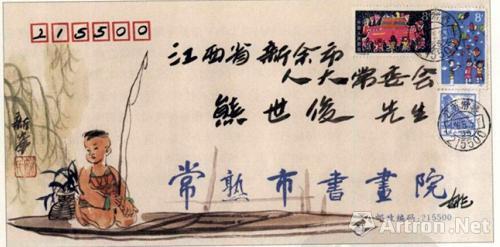 215500
8分
8分
江西省新余市
人大常委会
熊世俊 先生
新华
常熟市書畫院
姚
邮政编码:215500
215500
Artron.Net